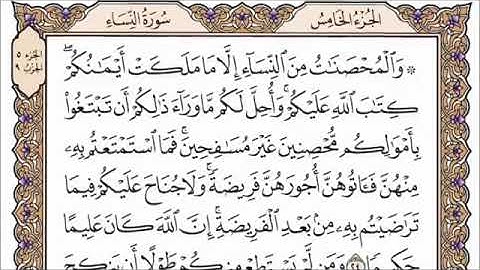 الجزء الخامس
سورة النساء
الجزء ٥
الحزب ٩
۞ وَٱلْمُحْصَنَٰتُ مِنَ ٱلنِّسَآءِ إِلَّا مَا مَلَكَتْ أَيْمَٰنُكُمْ ۖ
كِتَٰبَ ٱللَّهِ عَلَيْكُمْ ۚ وَأُحِلَّ لَكُم مَّا وَرَآءَ ذَٰلِكُمْ أَن تَبْتَغُوا۟
بِأَمْوَٰلِكُم مُّحْصِنِينَ غَيْرَ مُسَٰفِحِينَ ۚ فَمَا ٱسْتَمْتَعْتُم بِهِۦ
مِنْهُنَّ فَـَٔاتُوهُنَّ أُجُورَهُنَّ فَرِيضَةً ۚ وَلَا جُنَاحَ عَلَيْكُمْ فِيمَا
تَرَٰضَيْتُم بِهِۦ مِنۢ بَعْدِ ٱلْفَرِيضَةِ ۚ إِنَّ ٱللَّهَ كَانَ عَلِيمًا
حَكِيمًا ٢٤ وَمَن لَّمْ يَسْتَطِعْ مِنكُمْ طَوْلًا أَن يَنكِحَ